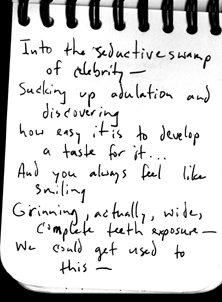 Into the seductive swamp
of celebrity —
Sucking up adulation and
discovering
how easy it is to develop
a taste for it...
And you always feel like
smiling
Grinning, actually, wide,
complete teeth exposure —
We could get used to
this —